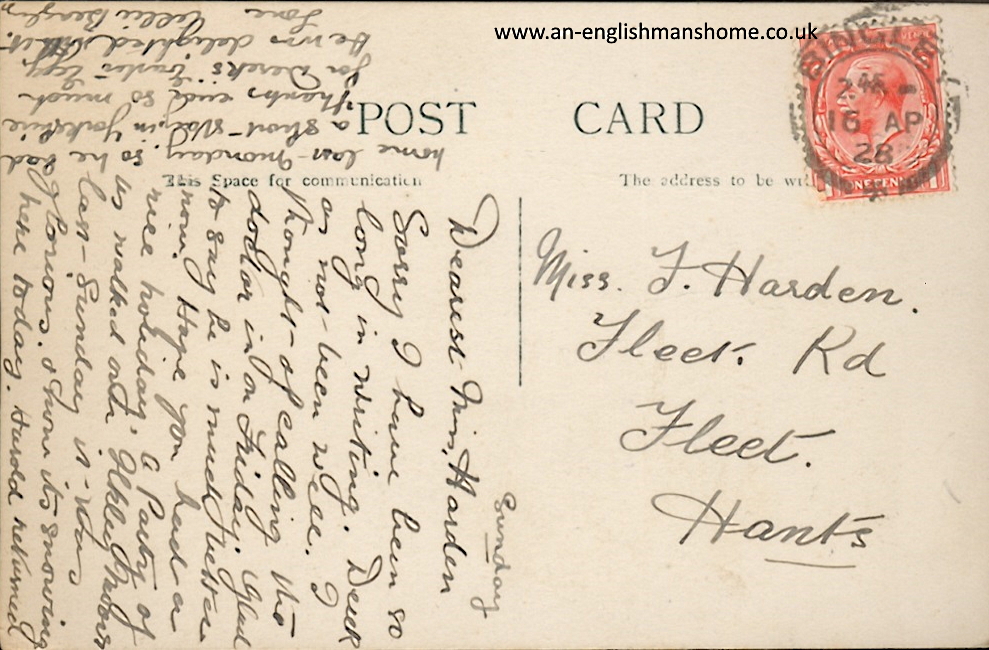 www.an-englishmanshome.co.uk
POST CARD
This Space for communication
The address to be
BINGLEY
16 AP
28
ONE PENNY
Miss. F. Harden.
Fleet. Rd
Fleet.
Hants
Sunday
Dearest Miss Harden
Sorry I have been so
long in writing. Derek
as not been well. I
thought of calling the
doctor in on Friday. Glad
to say he is much better
now. Hope you had a
nice holiday. A Party of
us walked over Ilkley Moors
last Sunday it was
glorious, & now its snowing
here today. Harold returned
home last Monday, so he had
a short stay in Yorkshire
Thanks so much
for Dereks Easter Egg
he was delighted with it.
Love